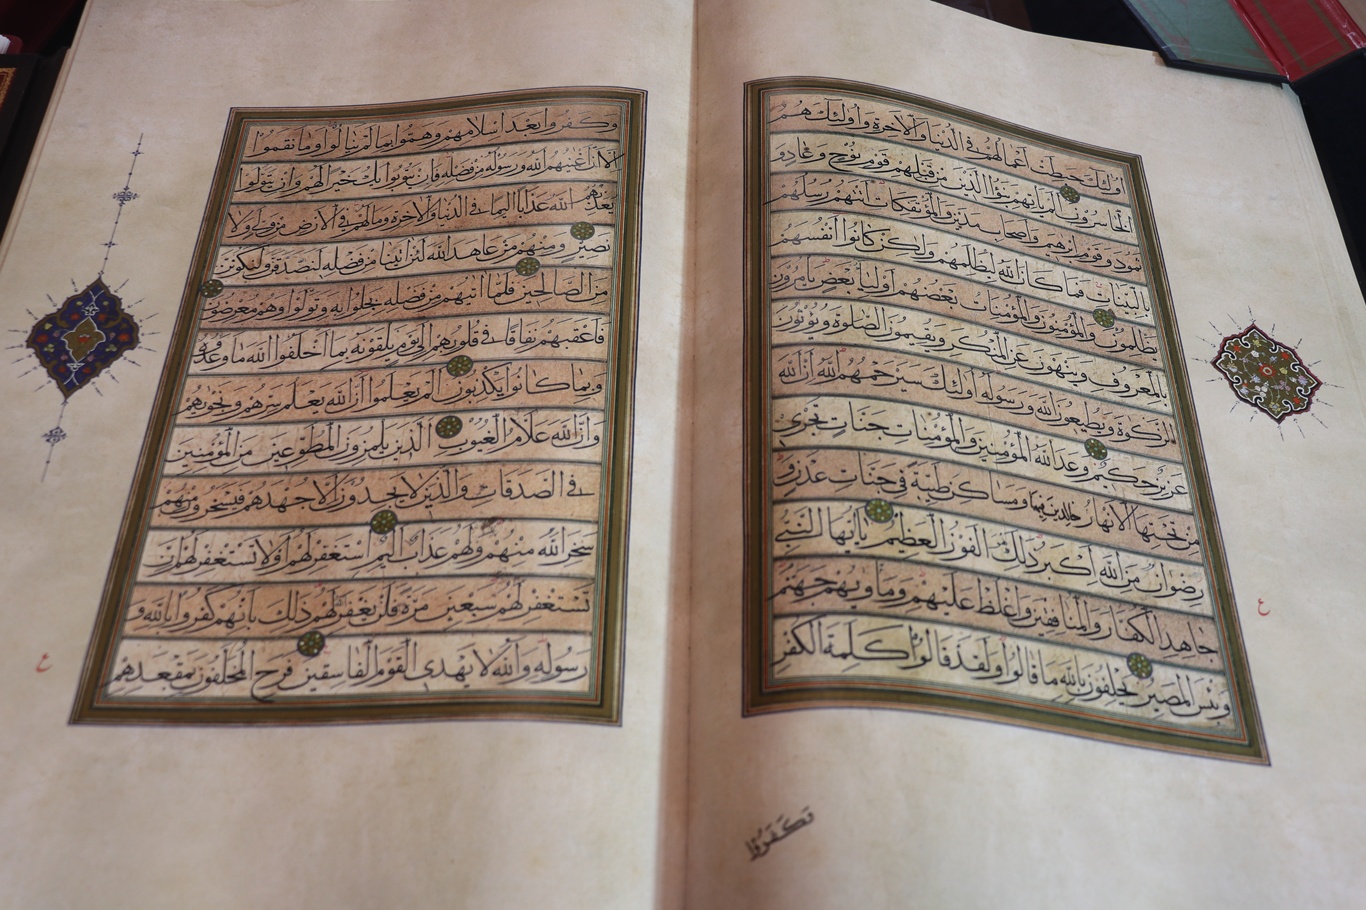 اولئك حبطت اعمالهم في الدنيا والآخرة واولئك هم
الخاسرون الم يأتهم نبؤا الذين من قبلهم قوم نوح وعاد و
ثمود وقوم ابرهيم واصحاب مدين والمؤتفكات اتتهم رسلهم
بالبينات فما كان الله ليظلمهم ولكن كانوا انفسهم
يظلمون والمؤمنون والمؤمنات بعضهم اولياء بعض يأمرون
بالمعروف وينهون عن المنكر ويقيمون الصلوة ويؤتون
الزكوة ويطيعون الله ورسوله اولئك سيرحمهم الله ان الله
عزيز حكيم وعد الله المؤمنين والمؤمنات جنات تجري
من تحتها الانهار خالدين فيها ومساكن طيبة في جنات عدن و
رضوان من الله اكبر ذلك الفوز العظيم يا ايها النبي
جاهد الكفار والمنافقين واغلظ عليهم ومأويهم جهنم
وبئس المصير يحلفون بالله ما قالوا ولقد قالوا كلمة الكفر
ع
وكفروا
وكفروا بعد اسلامهم وهموا بما لم ينالوا وما نقموا
الا ان اغنيهم الله ورسوله من فضله فان يتوبوا يك خيرا لهم وان يتولوا
يعذبهم الله عذابا اليما في الدنيا والآخرة وما لهم في الارض من ولي ولا
نصير ومنهم من عاهد الله لئن اتينا من فضله لنصدقن ولنكونن
من الصالحين فلما اتيهم من فضله بخلوا به وتولوا وهم معرضون
فاعقبهم نفاقا في قلوبهم الى يوم يلقونه بما اخلفوا الله ما وعدوه
وبما كانوا يكذبون الم يعلموا ان الله يعلم سرهم ونجويهم
وان الله علام الغيوب الذين يلمزون المطوعين من المؤمنين
في الصدقات والذين لا يجدون الا جهدهم فيسخرون منهم
سخر الله منهم ولهم عذاب اليم استغفر لهم او لا تستغفر لهم ان
تستغفر لهم سبعين مرة فلن يغفر الله لهم ذلك بانهم كفروا بالله و
رسوله والله لا يهدي القوم الفاسقين فرح المخلفون بمقعدهم
ع